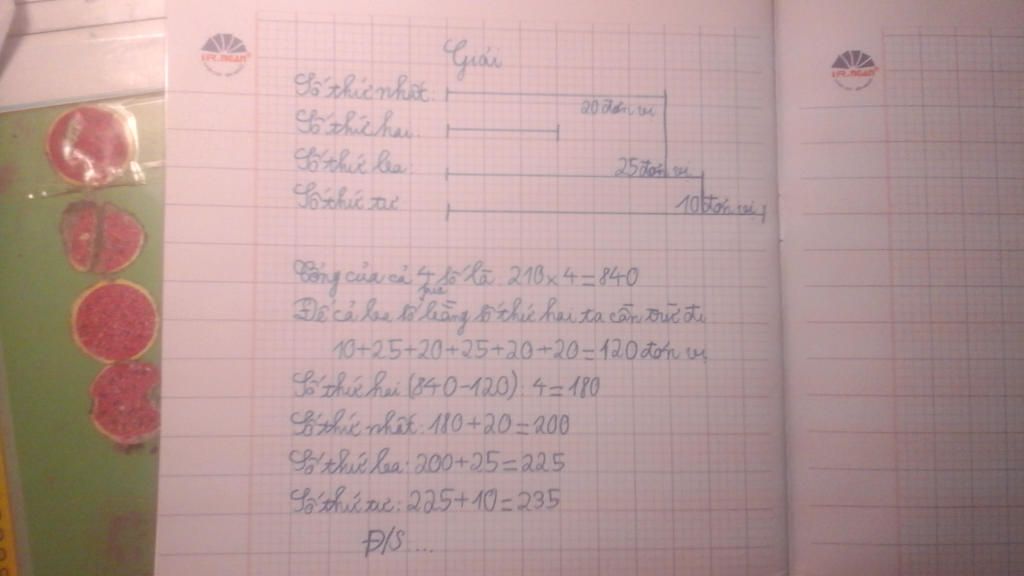 Giải
Số thứ nhất:
20 đơn vị
Số thứ hai:
Số thứ ba:
25 đơn vị
Số thứ tư
10 đơn vị
Tổng của cả 4 số là: 210 x 4 = 840
Để cả ba số bằng số thứ hai ta cần trừ đi
10+25+20+25+20+20=120 đơn vị
Số thứ hai (840-120): 4=180
Số thứ nhất: 180+20=200
Số thứ ba: 200+25=225
Số thứ tư: 225+10=235
Đ/S...